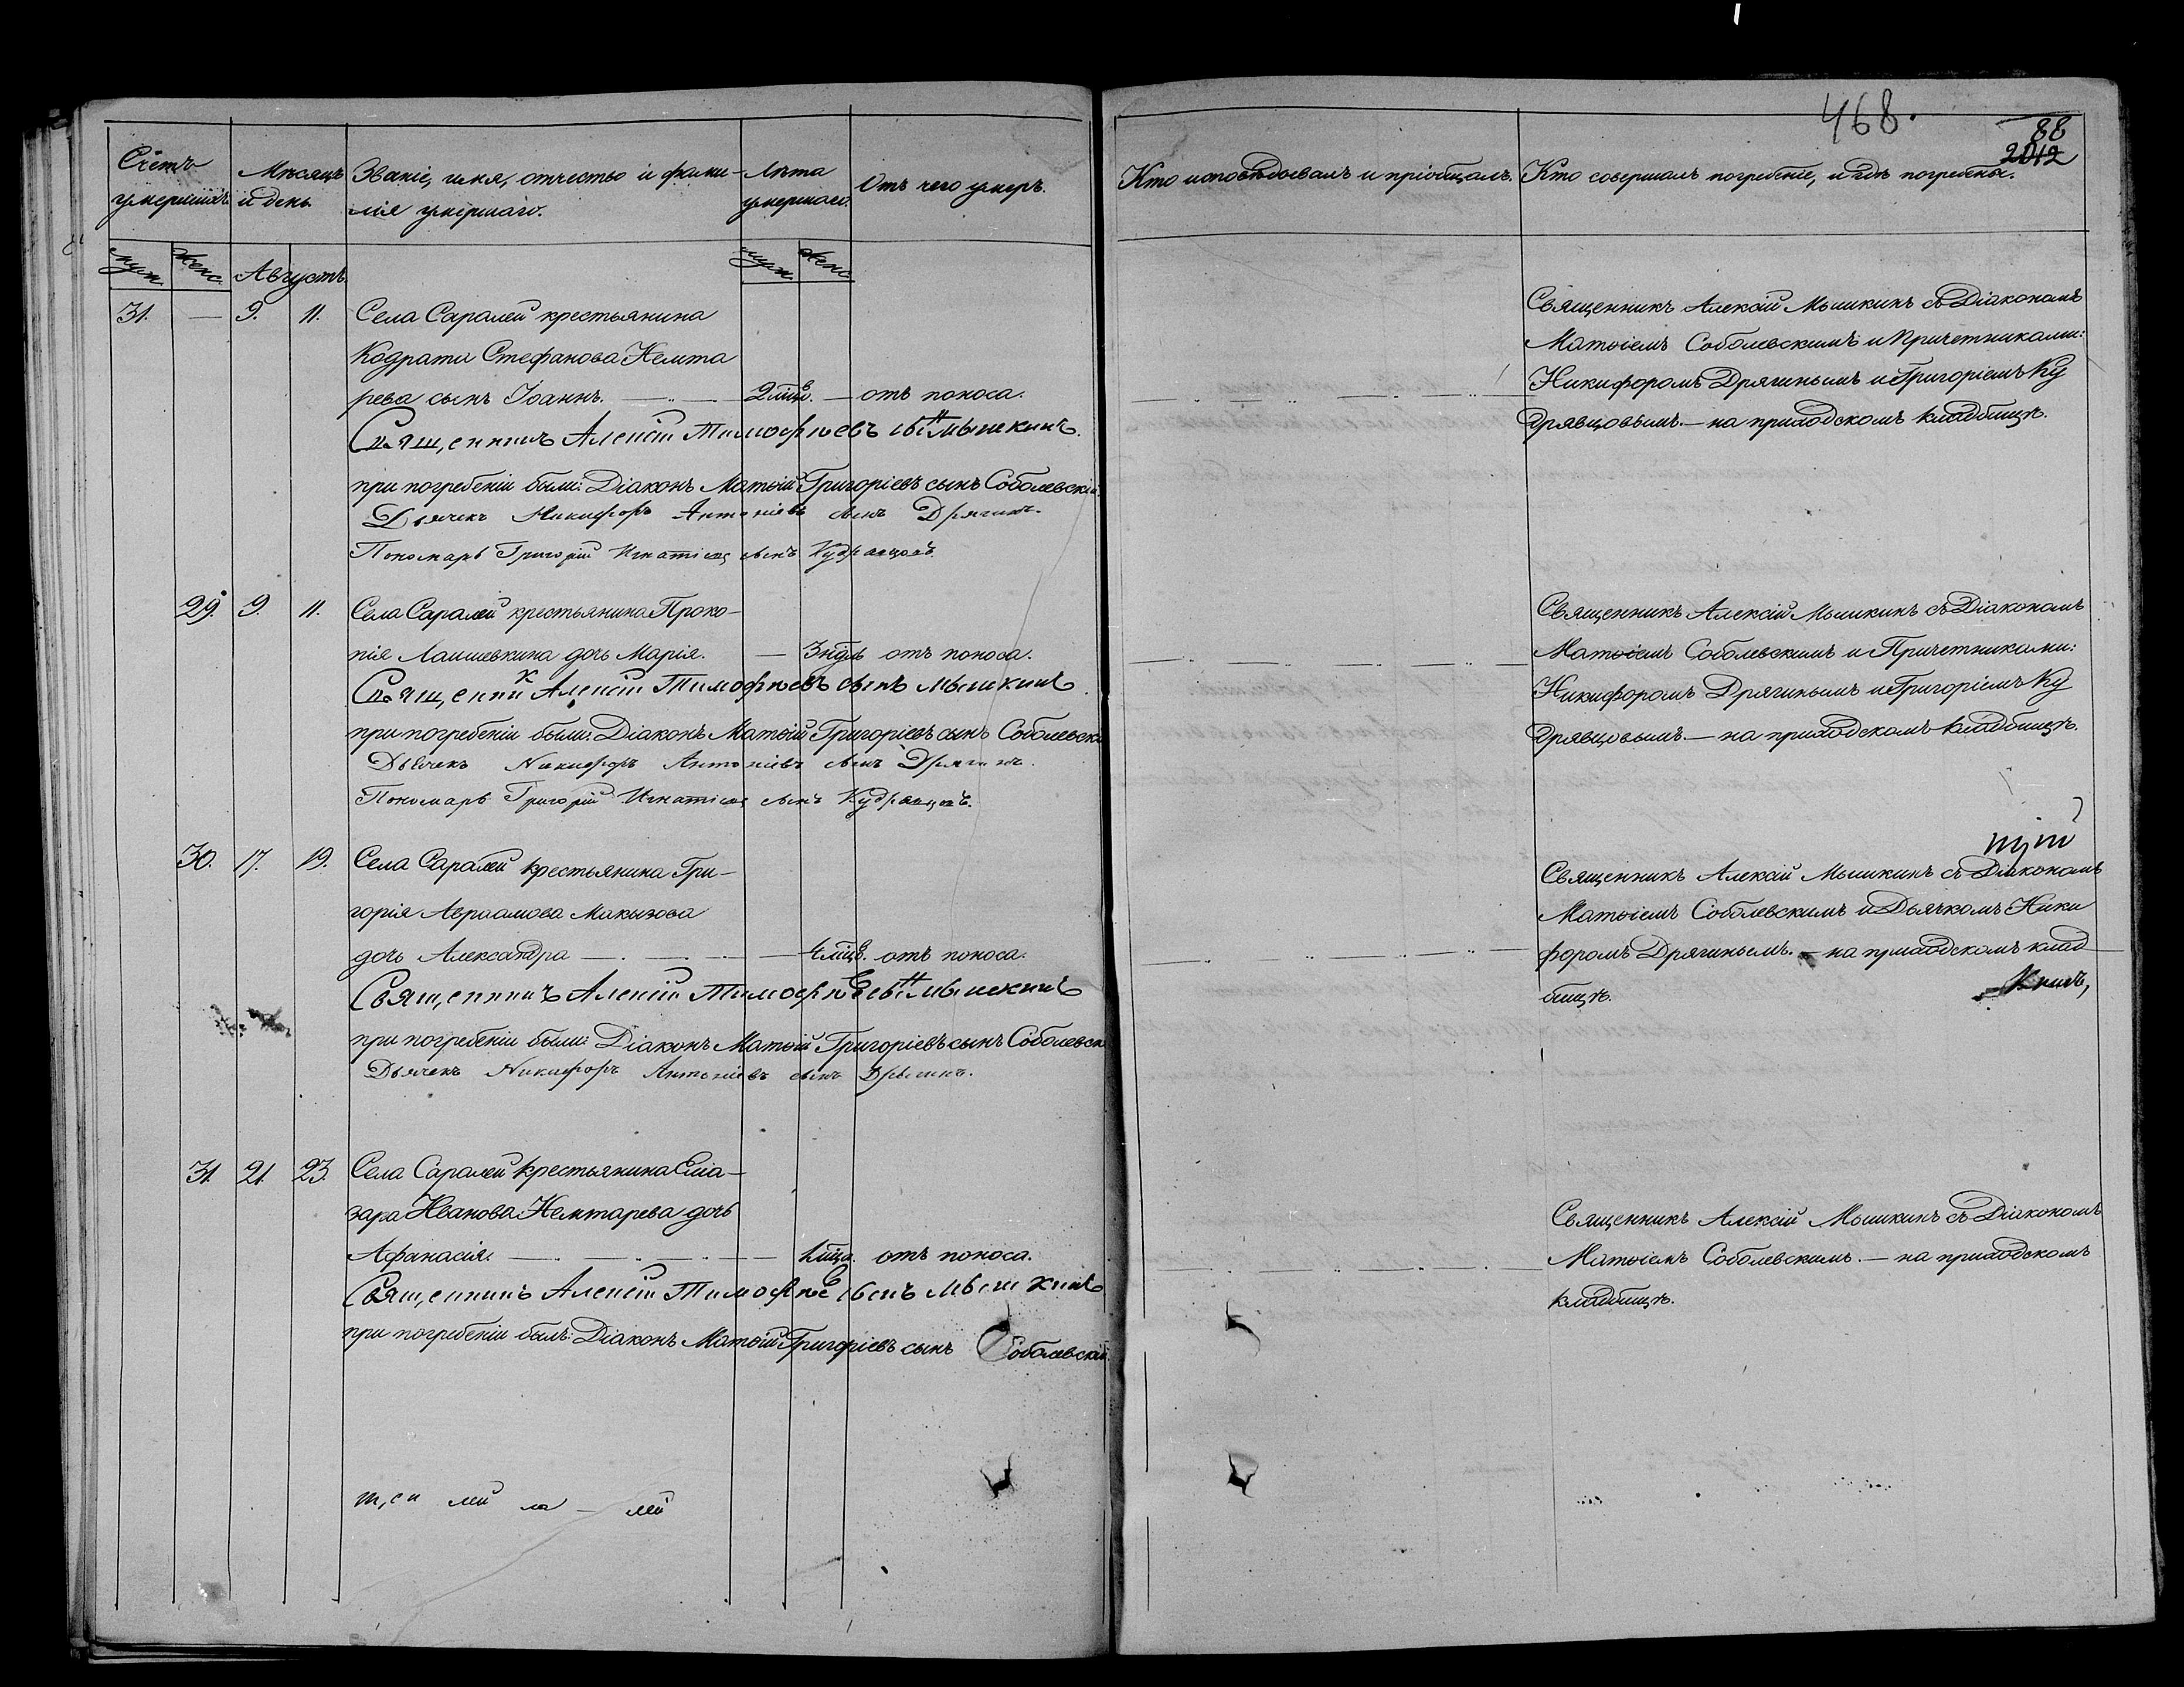 468.
88
2012
Счетъ умершихъ
Мѣсяцъ и день
Званіе, имя, отчество и фами-
лія умершаго.
Лѣта умершаго.
Отъ чего умеръ.
Кто исповѣдовалъ и пріобщалъ.
Кто совершалъ погребеніе, и гдѣ погребены.
муж. женс. Августъ. муж. женс.
31. — 9. 11. Села Саралей крестьянина
Кодрата Стефанова Немта
рева сынъ Іоаннъ. 2 мцо. — отъ поноса.
Священникъ Алексій Тимофѣевъ сынъ Мышкинъ.
при погребеніи были: Діаконъ Матѳій Григоріевъ сынъ Соболевскій
Дьячекъ Никифоръ Антоніевъ сынъ Дрягинъ.
Пономарь Григорій Игнатіевъ сынъ Кудрявцовъ.
Священникъ Алексій Мышкинъ съ Діакономъ
Матѳіемъ Соболевскимъ и Причетниками:
Никифоромъ Дрягинымъ и Григоріемъ Ку
дрявцовымъ. — на приходскомъ кладбищѣ.
29. 9. 11. Села Саралей крестьянина Проко-
пія Лаишевкина дочь Марія. — 3 ндл. отъ поноса.
Священникъ Алексій Тимофѣевъ сынъ Мышкинъ
при погребеніи были: Діаконъ Матѳій Григоріевъ сынъ Соболевскі
Дьячекъ Никифоръ Антоніевъ сынъ Дрягинъ.
Пономарь Григорій Игнатіевъ сынъ Кудрявцовъ.
Священникъ Алексій Мышкинъ съ Діакономъ
Матѳіемъ Соболевскимъ и Причетниками:
Никифоромъ Дрягинымъ и Григоріемъ Ку
дрявцовымъ. — на приходскомъ кладбищѣ.
30. 17. 19. Села Саралей крестьянина Гри-
горія Авраамова Макызова
дочь Александра — 4 мцо. отъ поноса.
Священникъ Алексій Тимофѣевъ сынъ Мышкинъ
при погребеніи были: Діаконъ Матѳій Григоріевъ сынъ Соболевск
Дьячекъ Никифоръ Антоніевъ сынъ Дрягинъ.
Священникъ Алексій Мышкинъ съ Діакономъ
Матѳіемъ Соболевскимъ и Дьячкомъ Ники
форомъ Дрягинымъ. — на приходскомъ клад
бищѣ.
31. 21. 23. Села Саралей крестьянина Елиа-
зара Иванова Немтарева дочь
Афанасія. — 1 мцо. отъ поноса.
Священникъ Алексій Тимофѣе сынъ Мышкинъ
при погребеніи былъ: Діаконъ Матѳій Григоріевъ сынъ Соболевскій.
Священникъ Алексій Мышкинъ съ Діакономъ
Матѳіемъ Соболевскимъ. — на приходскомъ
кладбищѣ.